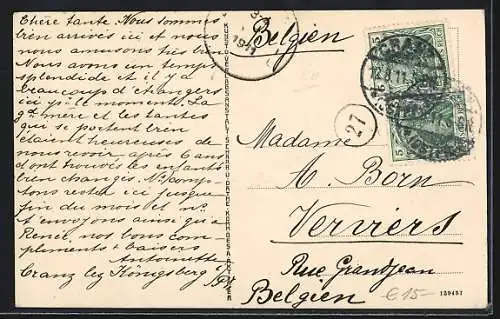 Chère tante. Nous sommes
bien arrivés ici et nous
nous amusons très bien
Nous avons un temps
splendide et il y a
beaucoup d'étrangers
ici p. le moment. La
gd mère et les tantes
qui se portent bien
étaient heureuses de
nous revoir après 6 ans
et ont trouvés les enfants
bien changés. Ns comp-
tons rester ici jusque
fin du mois et ns
t'envoyons ainsi qu'à
Renée nos bons com-
pliments & baisers
Antoinette
Cranz bey Königsberg i/Pr
Belgien
CRANZ
12.8.11
27
5
5
Madame
A. Born
Verviers
Rue Grandjean
Belgien
€15-
139457